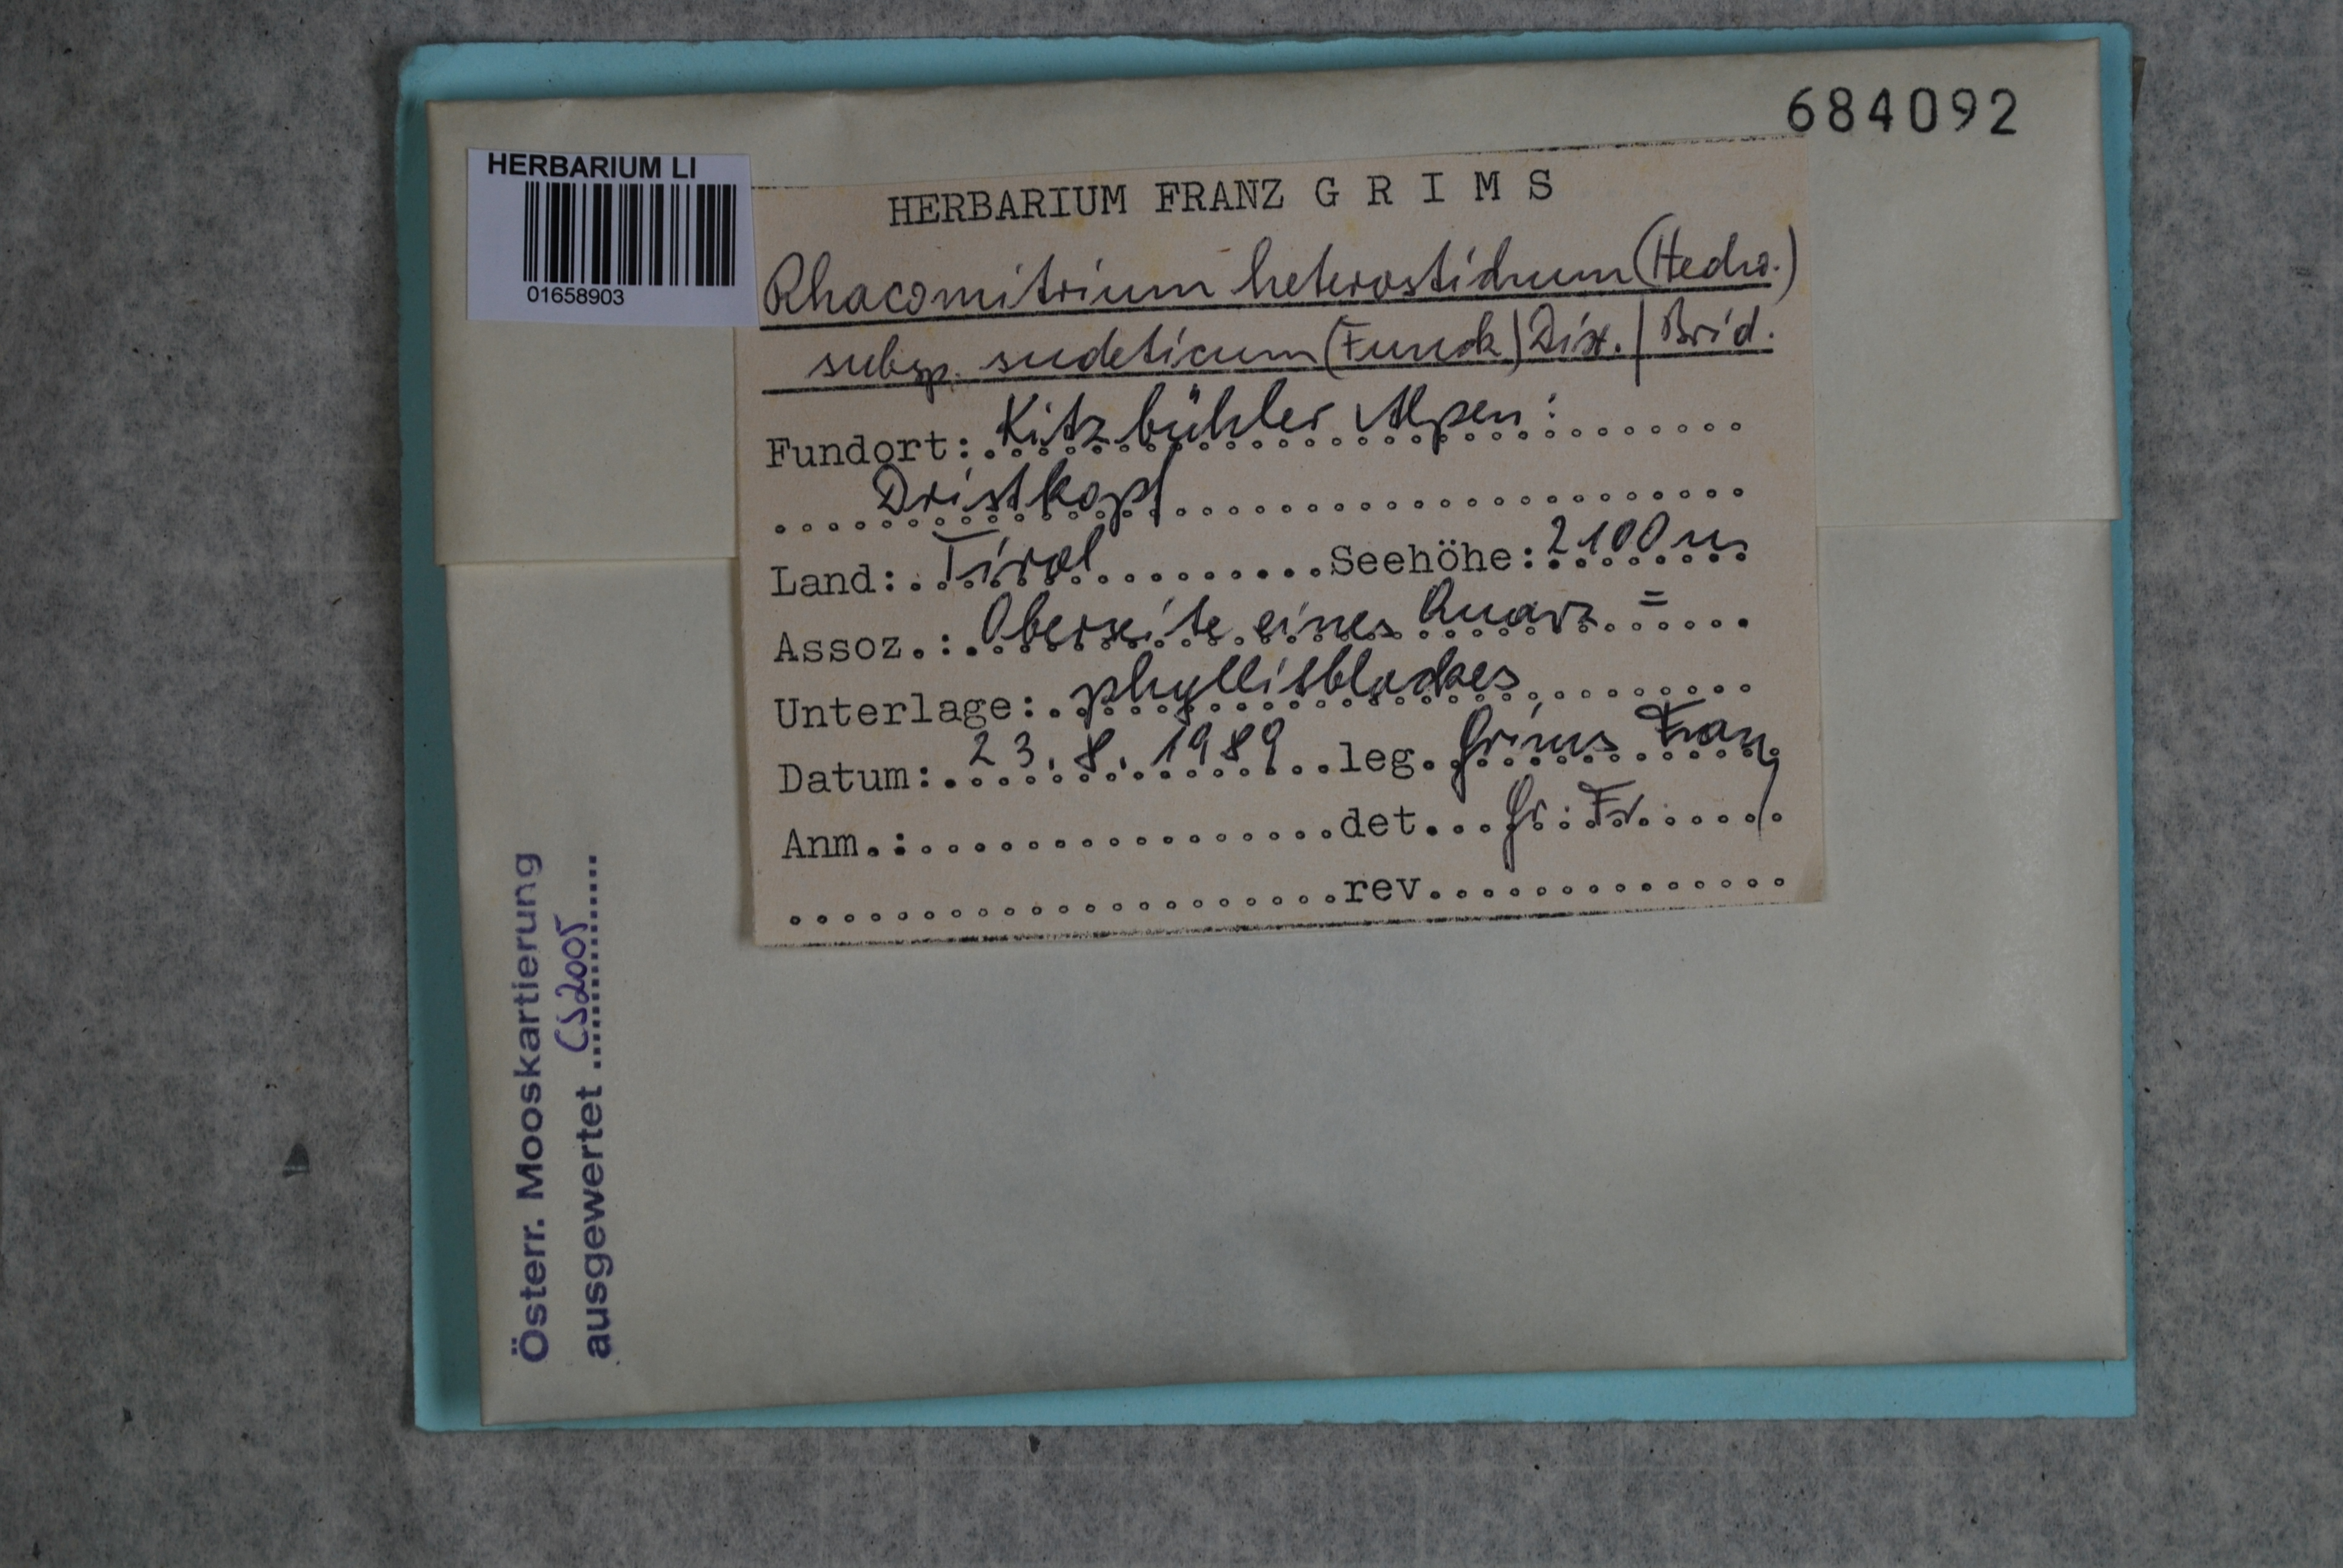 684092
HERBARIUM LI
01658903
HERBARIUM FRANZ G R I M S
Rhacomitrium heterostichum (Hedw.)
subsp. sudeticum (Funck) Dix. / Brid.
Fundort: Kitzbühler Alpen:
Dristkopf
Land: Tirol Seehöhe: 2100 m
Assoz.: Oberseite eines Quarz =
Unterlage: phyllitblockes
Datum: 23.8.1989 leg. Grims Franz
Anm.: det. Gr. Fr.
rev.
Österr. Mooskartierung
ausgewertet CS2005